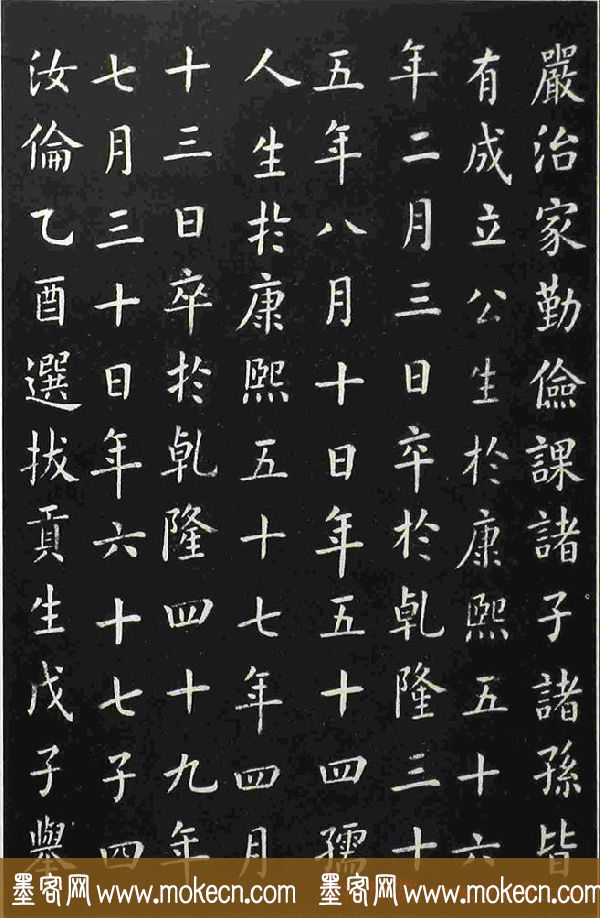 嚴治家勤儉課諸子諸孫皆
有成立公生於康熙五十六
年二月三日卒於乹隆三十
五年八月十日年五十四孺
人生於康熙五十七年四月
十三日卒於乹隆四十九年
七月三十日年六十七子四
汝倫乙酉選拔貢生戊子舉
墨客网 www.mokecn.com 墨客网 www.mokecn.com